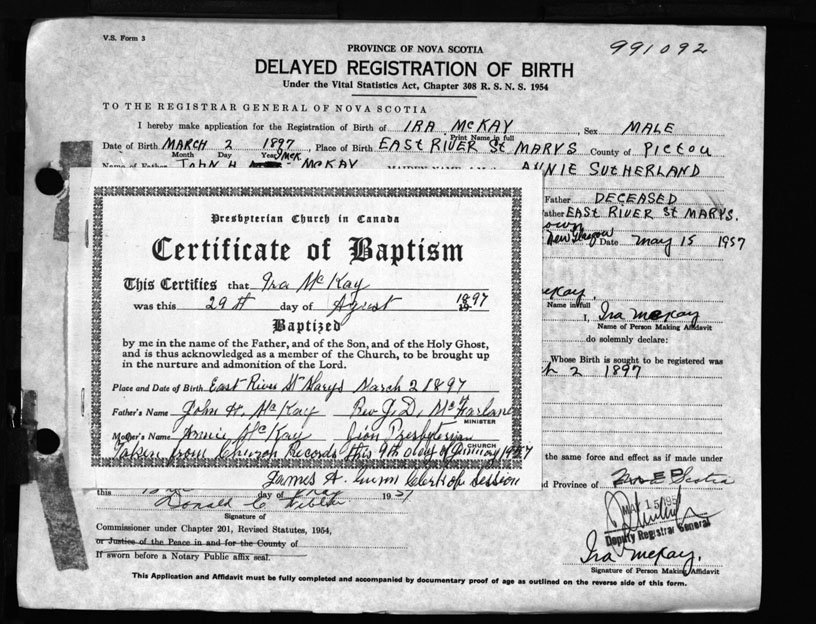 V.S. Form 3
991092
PROVINCE OF NOVA SCOTIA
DELAYED REGISTRATION OF BIRTH
Under the Vital Statistics Act, Chapter 308 R. S. N. S. 1954
TO THE REGISTRAR GENERAL OF NOVA SCOTIA
I hereby make application for the Registration of Birth of IRA McKAY, Sex MALE
Print Name in full
Date of Birth MARCH 2 1897, Place of Birth EAST RIVER St MARYS County of Pictou
Month Day Year
Name of Father JOHN H McKAY ANNIE SUTHERLAND
Father DECEASED
EAST RIVER St MARYS.
New Glasgow Date May 15 1957
Name in full
I, Ira McKay
Name of Person Making Affidavit
do solemnly declare:
Whose Birth is sought to be registered was
2 1897
Presbyterian Church in Canada
Certificate of Baptism
This Certifies that Ira McKay
was this 29th day of Agust 1897
Baptized
by me in the name of the Father, and of the Son, and of the Holy Ghost,
and is thus acknowledged as a member of the Church, to be brought up
in the nurture and admonition of the Lord.
Place and Date of Birth East River St Marys March 2 1897
Father's Name John H. McKay Rev J. D. McFarlane
MINISTER
Mother's Name Annie McKay Zion Presbyterian
CHURCH
Taken from Church Records this 9th day of 1957
James A. Clerk of Session
the same force and effect as if made under
and Province of Nova Scotia
this day of May 1957
Donald C.
Signature of
Commissioner under Chapter 201, Revised Statutes, 1954,
or Justice of the Peace in and for the County of
If sworn before a Notary Public affix seal.
MAY 15 1957
Deputy Registrar General
Ira McKay.
Signature of Person Making Affidavit
This Application and Affidavit must be fully completed and accompanied by documentary proof of age as outlined on the reverse side of this form.